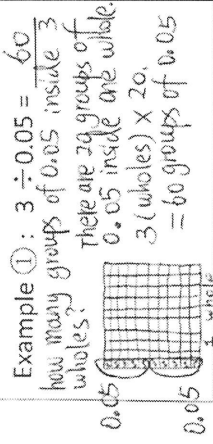 Example ①: 3 ÷ 0.05 = 60
how many groups of 0.05 inside 3
wholes?
There are 20 groups of
0.05 inside one whole.
3 (wholes) × 20.
= 60 groups of 0.05
0.05
0.05
1 whole